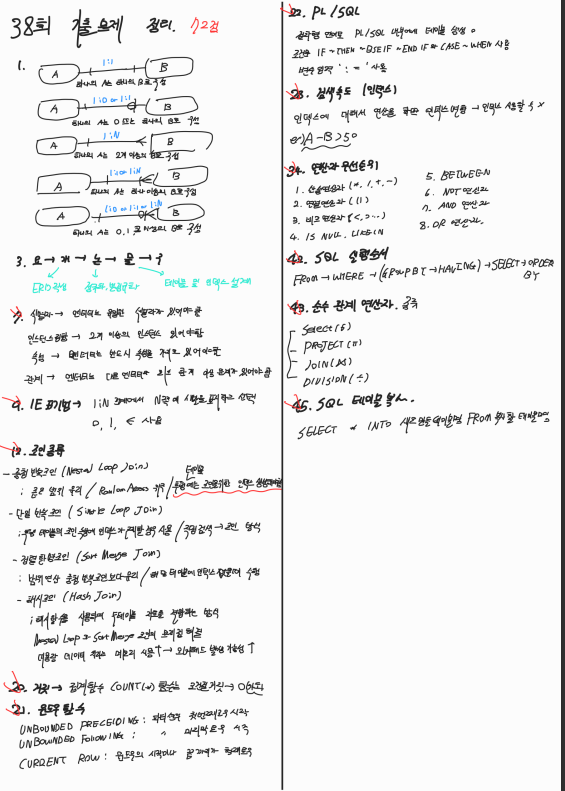 38회 기출 문제 정리. 72점
1.
A 1:1 B
하나의 A는 하나의 B로 구성
A 1:0 or 1:1 B
하나의 A는 0 또는 하나의 B로 구성
A 1:N B
하나의 A는 2개 이상의 B로 구성
1:1 or 1:N
A B
하나의 A는 하나 이상의 B로 구성
1:0 or 1:1 or 1:N
A B
하나의 A는 0, 1 또는 이상의 B로 구성
3. 요 → 개 → 논 → 물 →
ERD작성 테이블 및 인덱스 설계
7. 식별자 → 엔터티는 유일한 식별자가 있어야함
인스턴스집합 → 2개 이상의 인스턴스 있어야함
속성 → 엔터티는 반드시 속성을 가지고 있어야함
관계 → 엔터티는 다른 엔터티와 최소 한개 이상 관계가 있어야함
9. IE 표기법 → 1:N 관계에서 N쪽에 새발을 표기하고 선택
0, 1, < 사용
12. 조인 종류
- 중첩 반복조인 (Nested Loop Join)
테이블
: 좁은 범위 유리 / Random Access 위주 / 후행에는 조인을위한 인덱스 생성해야함
- 단일 반복조인 (Single Loop Join)
: 후행 테이블의 조인 속성에 인덱스가 존재할 경우 사용 / 선행검색 → 조인 방식
- 정렬합병조인 (Sort Merge Join)
: 범위연산 중첩 반복조인보다 유리 / 해당 테이블에 인덱스 없을때 수행
- 해시조인 (Hash Join)
: 해시함수를 사용하여 두테이블 자료를 결합하는 방식
Nested Loop과 Sort Merge 조인의 문제점 해결
대용량 데이터 처리는 메모리 사용↑ → 오버헤드 발생 가능성↑
20. 거짓 → 집계함수 COUNT(*) 함수는 조건절거짓 → 0반환
21. 윈도우 함수
UNBOUNDED PRECEIDING : 파티션의 첫번째로우 시작
UNBOUNDED Following : " 마지막 로우 시작
CURRENT ROW : 윈도우의 시작이나 끝 위치가 현재로우
22. PL/SQL
절차형 언어로 PL/SQL 내부에 테이블 생성 o
조건문 IF ~ THEN ~ ELSE IF ~ END IF와 CASE ~ WHEN 사용
변수 대입시 ' : = ' 사용
23. 검색속도 (인덱스)
인덱스에 대해서 연산을 하면 인덱스변형 → 인덱스 사용할 수 x
ex) A - B > 50
34. 연산자 우선순위
1. 산술연산자 (*, /, +, -)
2. 연결연산자 (||)
3. 비교연산자 (<, > ...)
4. IS NULL, LIKE, IN
5. BETWEEN
6. NOT 연산자
7. AND 연산자
8. OR 연산자.
42. SQL 실행순서
FROM → WHERE → (GROUP BY → HAVING) → SELECT → ORDER
BY
43. 순수 관계 연산자. 종류
Select (δ)
PROJECT (π)
JOIN (⋈)
DIVISION (÷)
45. SQL 테이블 복사.
SELECT * INTO 새로만들테이블명 FROM 복사할 테이블명